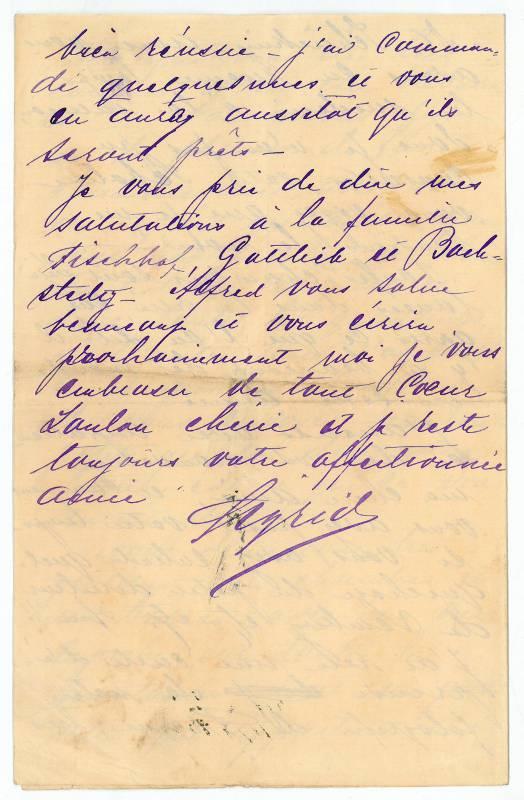 bien réussie – j'ai comman-
dé quelquesunes et vous
en aurez aussitôt qu'ils
seront prêts –
Je vous prie de dire mes
salutations à la famille
Fischhof, Gottlieb et Bach-
– Alfred vous salue
beaucoup et vous écrira
prochainement moi je vous
embrasse de tout Coeur
Loulou chérie et je reste
toujours votre affectionnée
amie
Sigrid